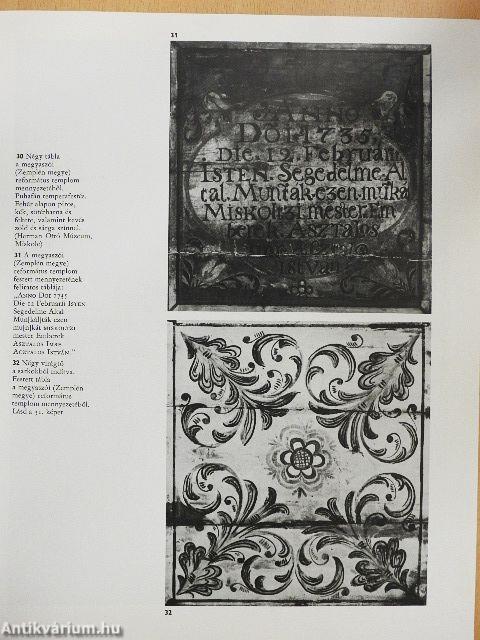 31
ANNO
DOI 1735.
Die. 12. Februarii
ISTEN. Segedelme. Al
tal. Munták. ezen. munká
MISKOLTZI. mester. Em
berek. ASZTALOS
30 Négy tábla
a megyaszói
(Zemplén megye)
református templom
mennyezetéből.
Puhafán temperafestés.
Fehér alapon piros,
kék, sötétbarna és
fekete, valamint kevés
zöld és sárga színnel.
(Herman Ottó Múzeum,
Miskolc)
31 A megyaszói
(Zemplén megye)
református templom
festett mennyezetének
feliratos táblája:
„ANNO DOI 1735
Die 12 Februarii ISTEN
Segedelme Által
Mun[kál]ták ezen
mu[n]kát MISKOLTZI
mester Emberek
ASZTALOS IMRE
ASZTALOS ISTVÁN."
32 Négy virágtő
a sarkokból indítva.
Festett tábla
a megyaszói (Zemplén
megye) református
templom mennyezetéből.
Lásd a 31. képet
32
Antikvárium.hu